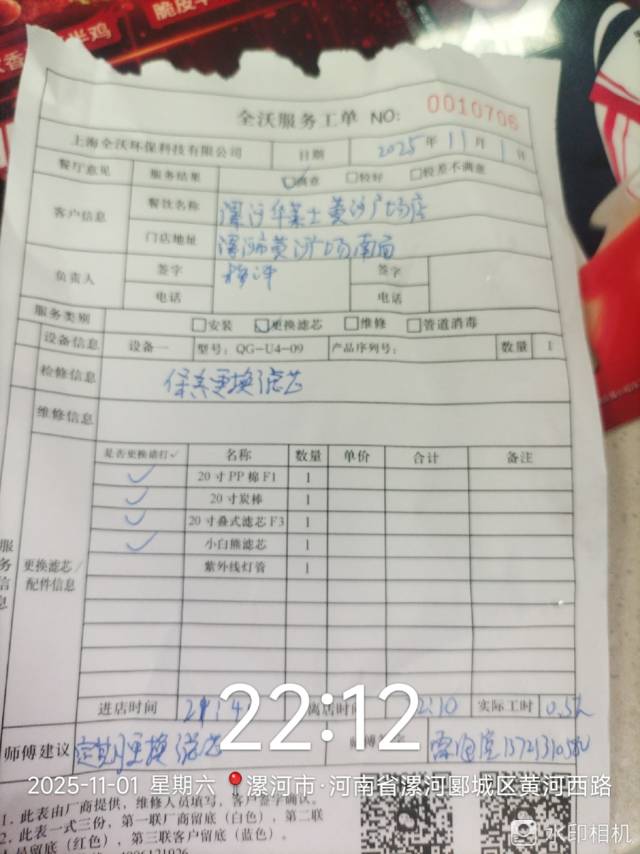 脆皮
半鸡
全沃服务工单 NO: 0010706
上海全沃环保科技有限公司 日期 2025年11月1日
餐厅意见 服务结果 满意 较好 较差不满意
客户信息 餐饮名称 漯河华莱士黄河广场店
门店地址 漯河市黄河广场南面
负责人 签字 签字
电话 电话
服务类别 安装 更换滤芯 维修 管道消毒
设备信息 设备一 型号: QG-U4-09 产品序列号: 数量 1
检修信息 保养更换滤芯
维修信息
是否更换请打✓ 名称 数量 单价 合计 备注
✓ 20寸PP棉F1 1
✓ 20寸炭棒 1
✓ 20寸叠式滤芯F3 1
✓ 小白熊滤芯 1
紫外线灯管 1
服务信息 更换滤芯/配件信息
进店时间 离店时间 实际工时
22:12
师傅建议 定期更换滤芯
2025-11-01 星期六 漯河市·河南省漯河郾城区黄河西路
1. 此表由厂商提供，维修人员填写，客户签字确认。
2. 此表一式三份，第一联厂商留底（白色），第二联
留底（红色），第三联客户留底（蓝色）。
水印相机